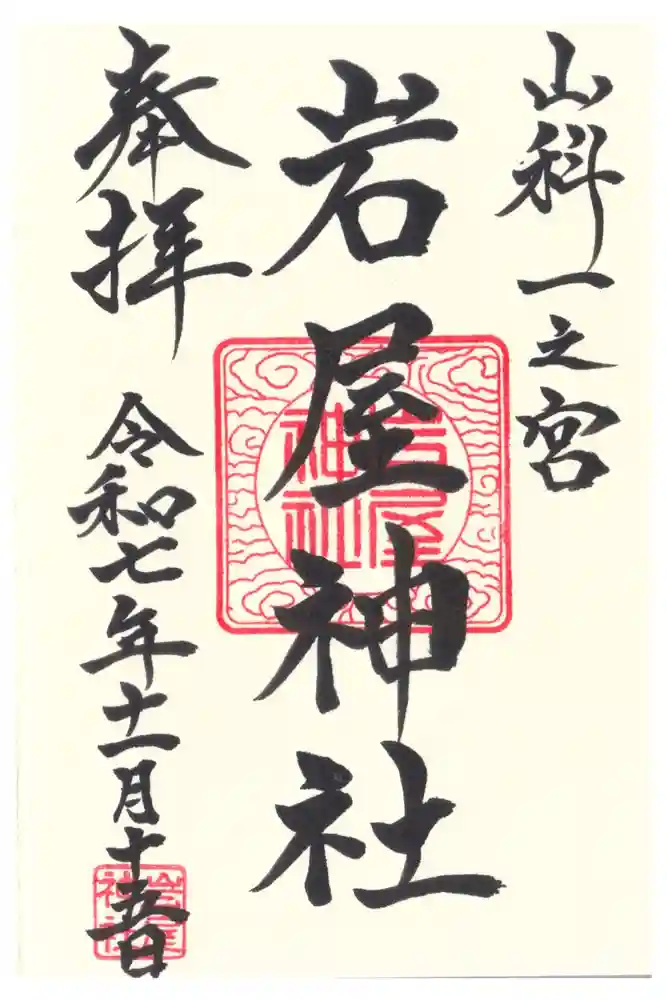 山科一之宮
岩屋神社
岩屋神社
奉拝
令和七年十一月十五日
岩屋神社